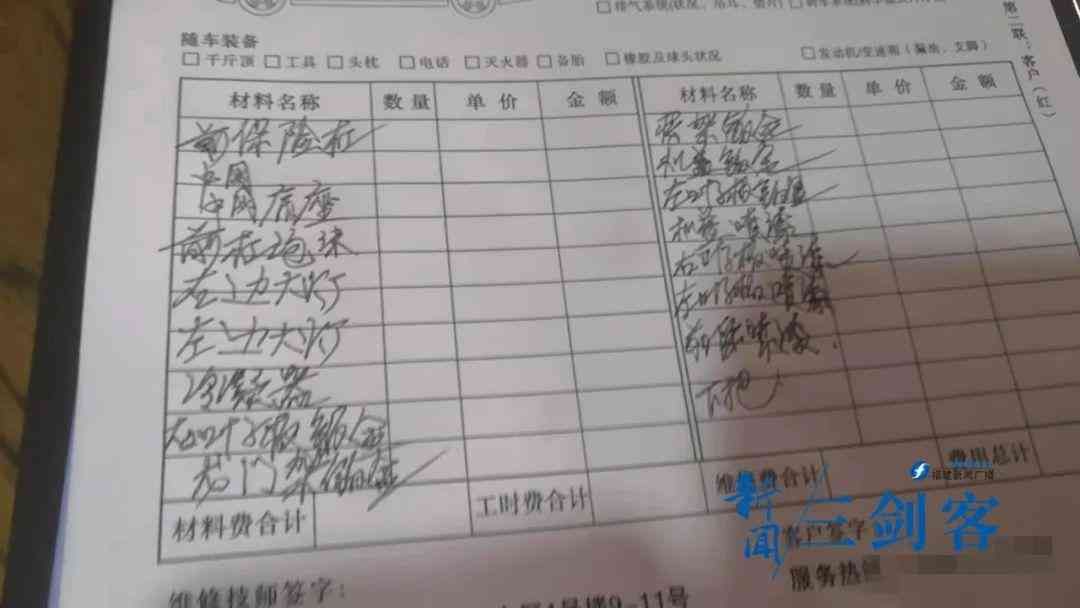 排气系统(状况、吊耳、垫片)
随车装备
千斤顶 工具 头枕 电话 灭火器 备胎 橡胶及球头状况 发动机/变速箱(漏油、支脚)
第二联:客户(红)
材料名称 数量 单价 金额 材料名称 数量 单价 金额
前保险杠
中网
中网底座
左边大灯
左边大灯
冷凝器
左叶子板钣金
龙门架钣金
机盖钣金
左叶子板钣金
机盖喷漆
右叶子板喷漆
左叶子板喷漆
材料费合计 工时费合计 维修费合计 费用总计
维修技师签字: 客户签字
服务热
9-11号
福建新闻广播
新闻 剑客